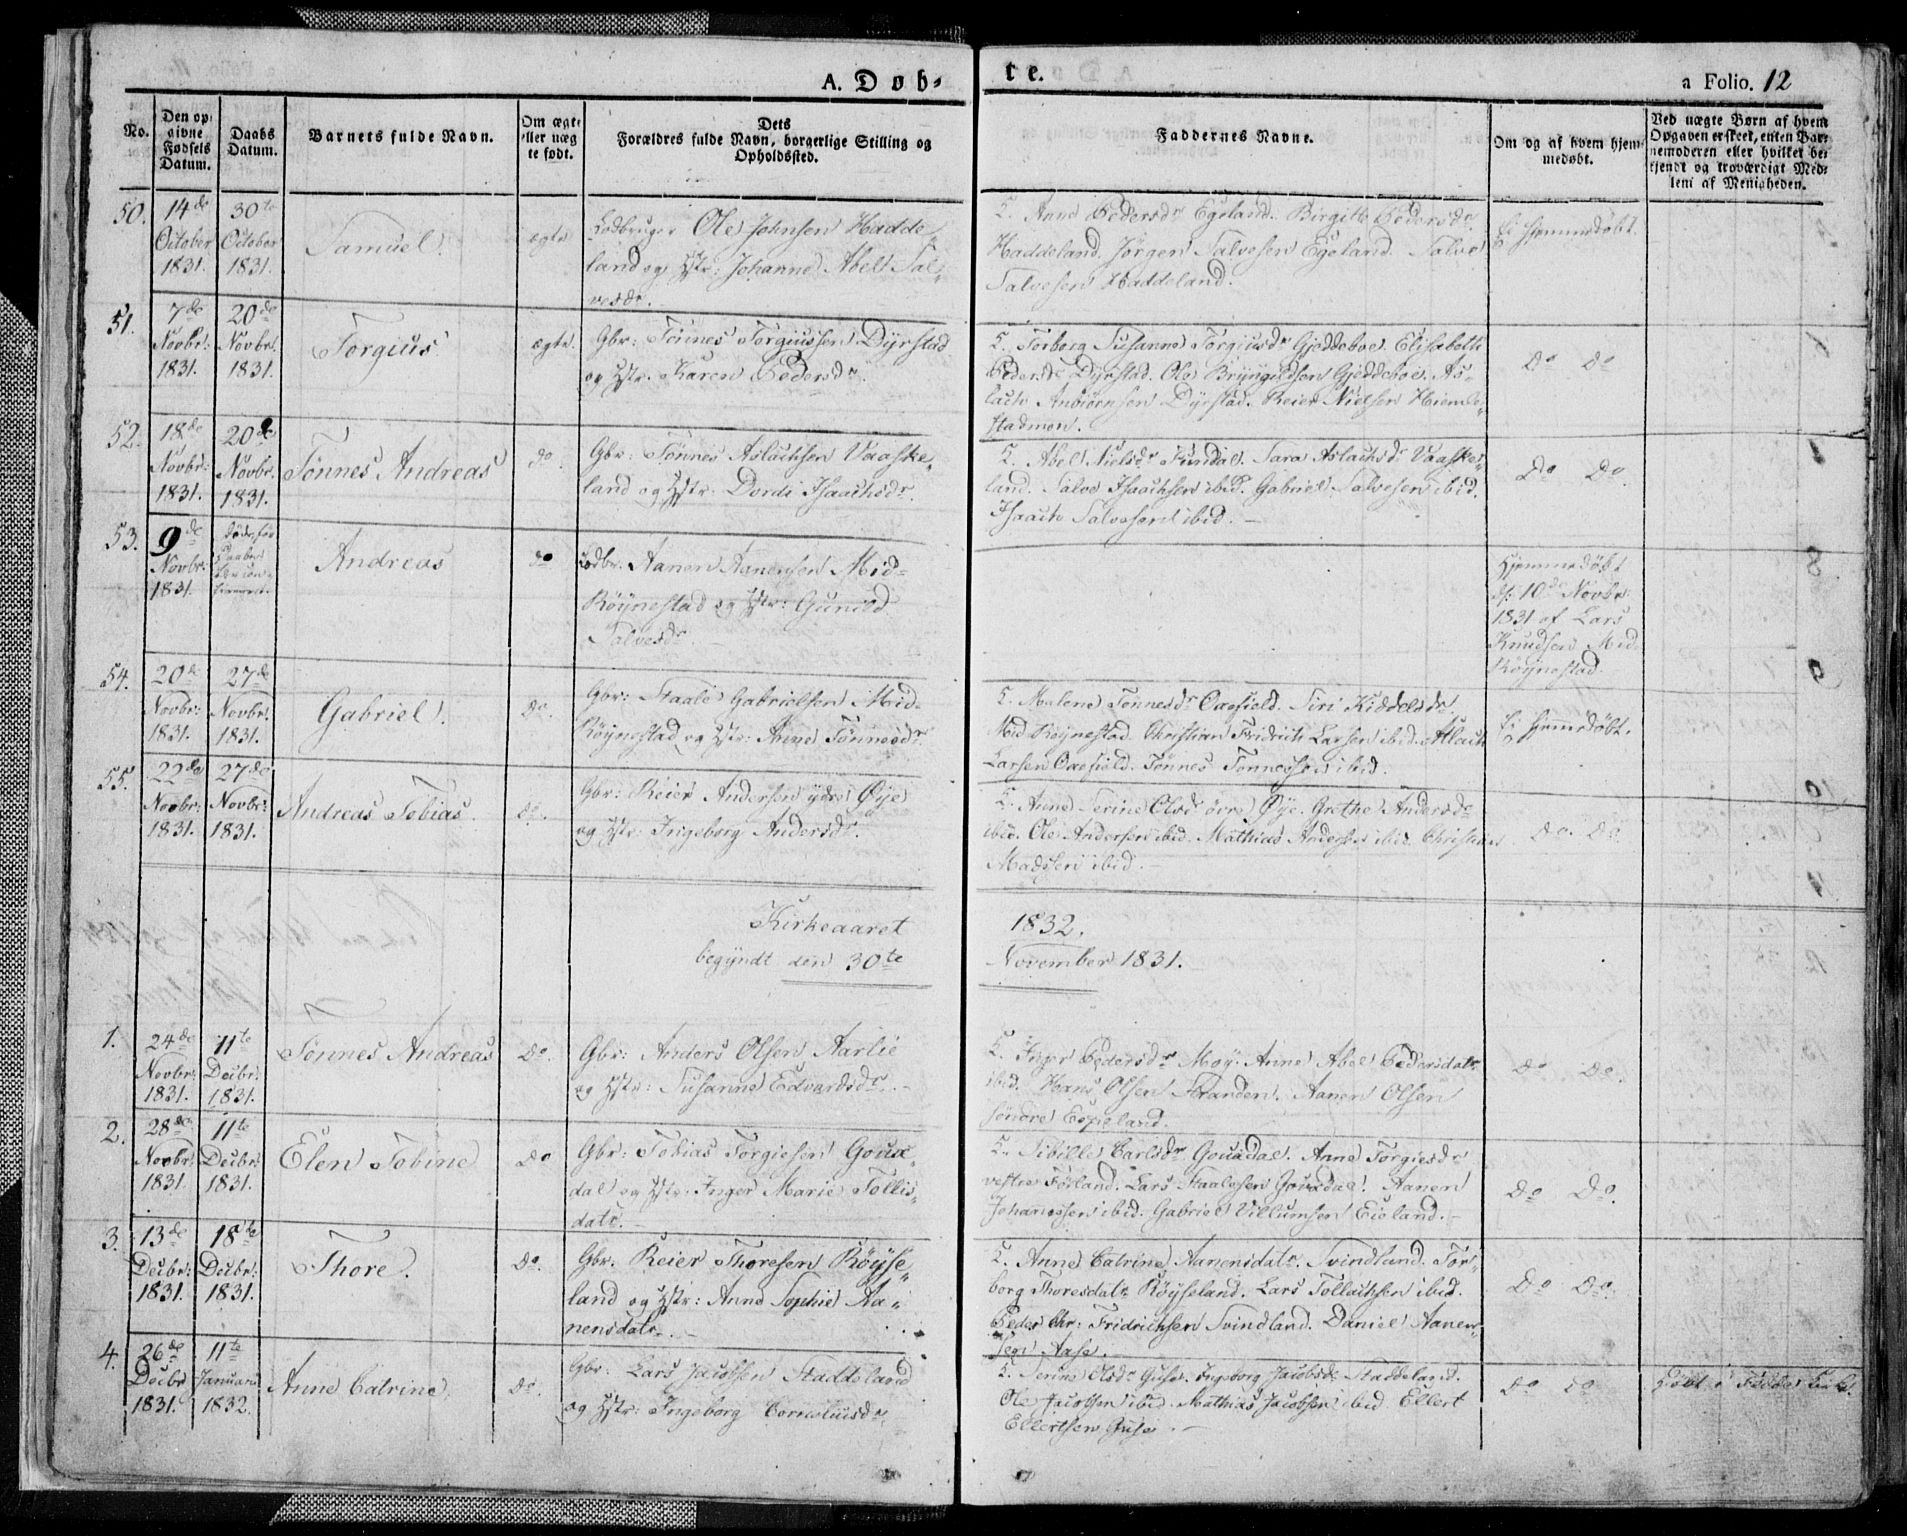 A. Døb-
te.
a Folio. 12
No.
Den op-
givne
Fødsels
Datum.
Daabs
Datum.
Barnets fulde Navn.
Om ægte
eller uæg
te født.
Dets
Forældres fulde Navn, borgerlige Stilling og
Opholdssted.
Faddernes Navne.
Om og af hvem hjem-
medøbt.
Ved uægte Børn af hvem
Opgaven er skeet, enten Bar-
nemoderen eller hvilket be-
kjendt og troværdigt Med-
lem af Menigheden.
50.
14de
October
1831.
30te
October
1831.
Samuel.
ægte
Lodbruger Ole Johnsen Hadde
land og Hstr: Johanne Abel Sal-
vesdr.
F. Anne Pedersdr Egeland. Birgitte Pedersdr
Haddeland. Jørgen Salvesen Egeland. Salve
Salvesen Haddeland.
Ei hjemmedøbt.
51.
7de
Novbr:
1831.
20de
Novbr.
1831.
Torgius
ægte.
Gbr: Tønnes Torgiussen Dyrstad
og Hstr. Karen Pedersdr.
F. Torborg Susanne Torgiusdr Gjeddeboe. Elisabeth
Pedersdr Dyrstad. Ole Bryngildsen Gjeddeboe. As-
lach Anbiørnsen Dyrstad. Reier Nielsen Hiemle-
stadmon.
Do Do
52.
18de
Novbr:
1831.
20de
Novbr.
1831.
Tønnes Andreas
do.
Gbr: Tønnes Aslachsen Vaaske-
land og Hstr: Dordi Isaachsdr.
F. Abel Nielsdr Sundal. Sara Aslachsdr Vaaske-
land. Salve Isaachsen ibid. Gabriel Salvesen ibid.
Isaach Salvesen ibid. —
Do Do.
53.
9de
Novbr:
1831.
Døde før
Daaben
Andreas
do
Lodbr: Aanen Aanensen Mid-
Røynestad og Hstr: Gunild
Salvesdr.
Hjemmedøbt
d: 10de Novbr
1831 af Lars
Knudsen Mid
Røynestad
54.
20de
Novbr:
1831.
27de
Novbr.
1831.
Gabriel.
do.
Gbr: Staale Gabrielsen Mid-
Røynestad og Hstr: Anne Tønnesdr.
F. Malene Tønnesdr Oxefield. Siri Kiddelsdr
Mid Røynestad. Christian Fridrich Larsen ibid. Aslach
Larsen Oxefield. Tønnes Tønnessen ibid.
Ei hjemedøbt.
55.
22de
Novbr:
1831.
27de
Novbr:
1831.
Andreas Tobias.
do.
Gbr: Reier Andersen ydre Øye
og Hstr: Ingeborg Andersdr.
F. Anne Serine Olsdr øvre Øye. Grethe Andersdr
ibid. Ole Andersen ibid. Mathias Andersen ibid. Christian
Madssen ibid. —
Do. Do
Kirkeaaret 1832.
begyndt den 30te November 1831.
1.
24de
Novbr:
1831.
11te
Decbr:
1831.
Tønnes Andreas
Do.
Gbr: Anders Olsen Aarlie
og Hstr: Susanne Edvardsdr. —
F. Inger Pedersdr Moy. Anne Abel Pedersdatr
ibid. Hans Olsen Stranden. Aanen Olsen
søndre Espeland.
Do Do.
2.
28de
Novbr:
1831.
11te
Decbr:
1831.
Elen Tobine
Do
Gbr: Tobias Torgiesen Goua-
dal og Hstr: Inger Marie Tollis-
datr. —
F. Sibille Carlsdr Gouadal. Anne Torgiesdr
vestre Førland. Lars Staalesen Gouadal. Aanen
Johannssen ibid. Gabriel Villumsen Eieland. —
Do Do.
3.
13de
Decbr:
1831.
18de
Decbr:
1831.
Thore.
Do.
Gbr: Reier Thoresen Røyse-
land og Hstr: Anne Sophie Aa-
nensdatr. —
F. Anne Catrine Aanensdatr. Svindland. Tor-
borg Thoresdatr Røyseland. Lars Tollachsen ibid.
Peder Chr: Fridrichsen Svindland. Daniel Aanen-
sen Aase. —
Do Do.
4.
26de
Decbr
1831.
11te
Januari
1832.
Anne Catrine.
Do.
Gbr: Lars Jacobsen Staddeland
og Hstr: Ingeborg Corneliusdr
F. Serine Olsdr Guse. Ingeborg Jacobsdr Staddeland.
Ole Jacobsen ibid. Mathias Jacobsen ibid. Ellert
Ellertsen Guse. —
Do Do
Døbt i Fedde Kirke.